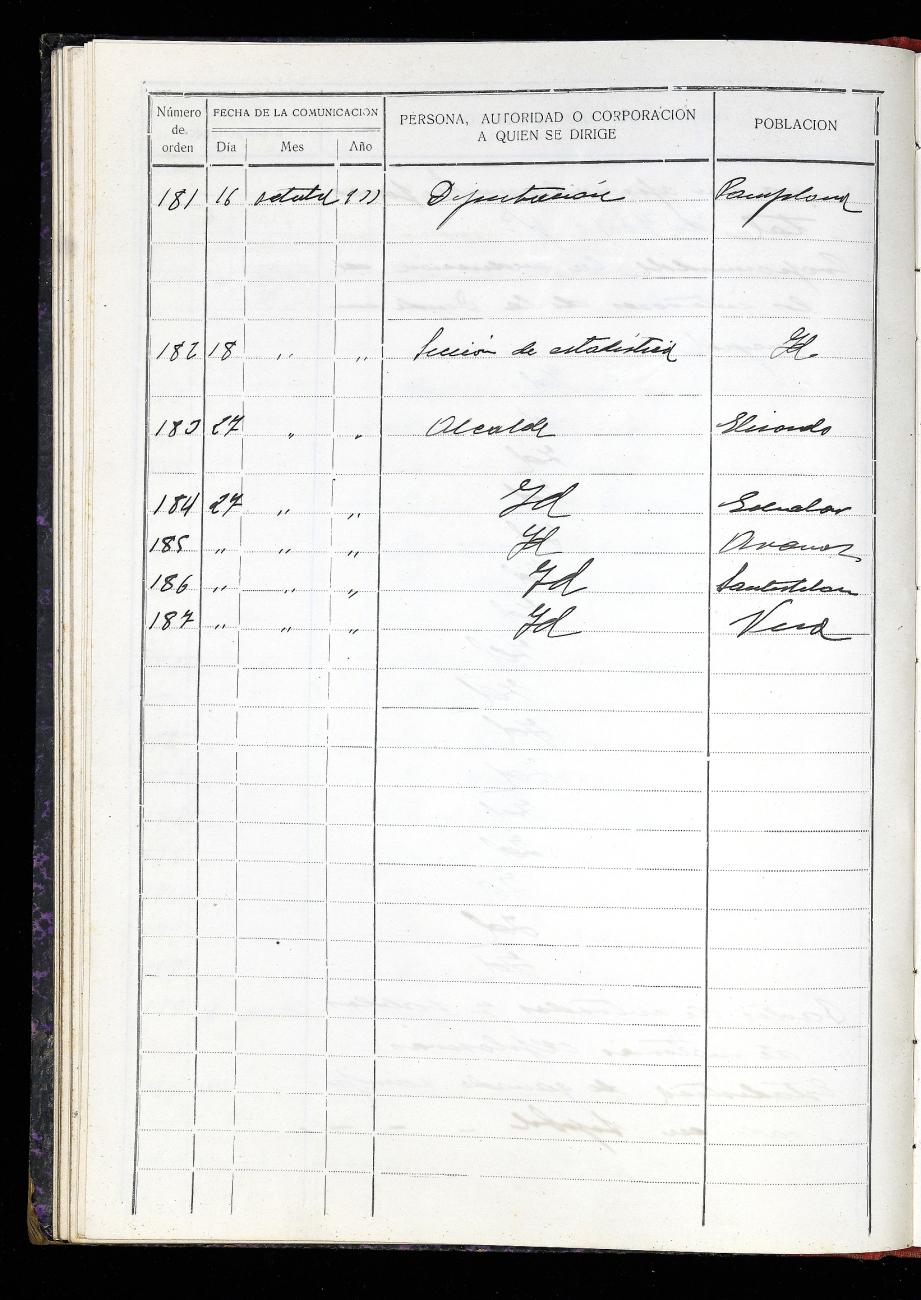 Número de orden FECHA DE LA COMUNICACIÓN PERSONA, AUTORIDAD O CORPORACION A QUIEN SE DIRIGE POBLACION
Día Mes Año
181 16 octubre 933 Diputación Pamplona
182 18 ,, ,, Sección de estadística Id.
183 27 ,, ,, Alcalde Elizondo
184 27 ,, ,, Id
185 ,, ,, ,, Id Aranaz
186 ,, ,, ,, Id Santesteban
187 ,, ,, ,, Id Vera